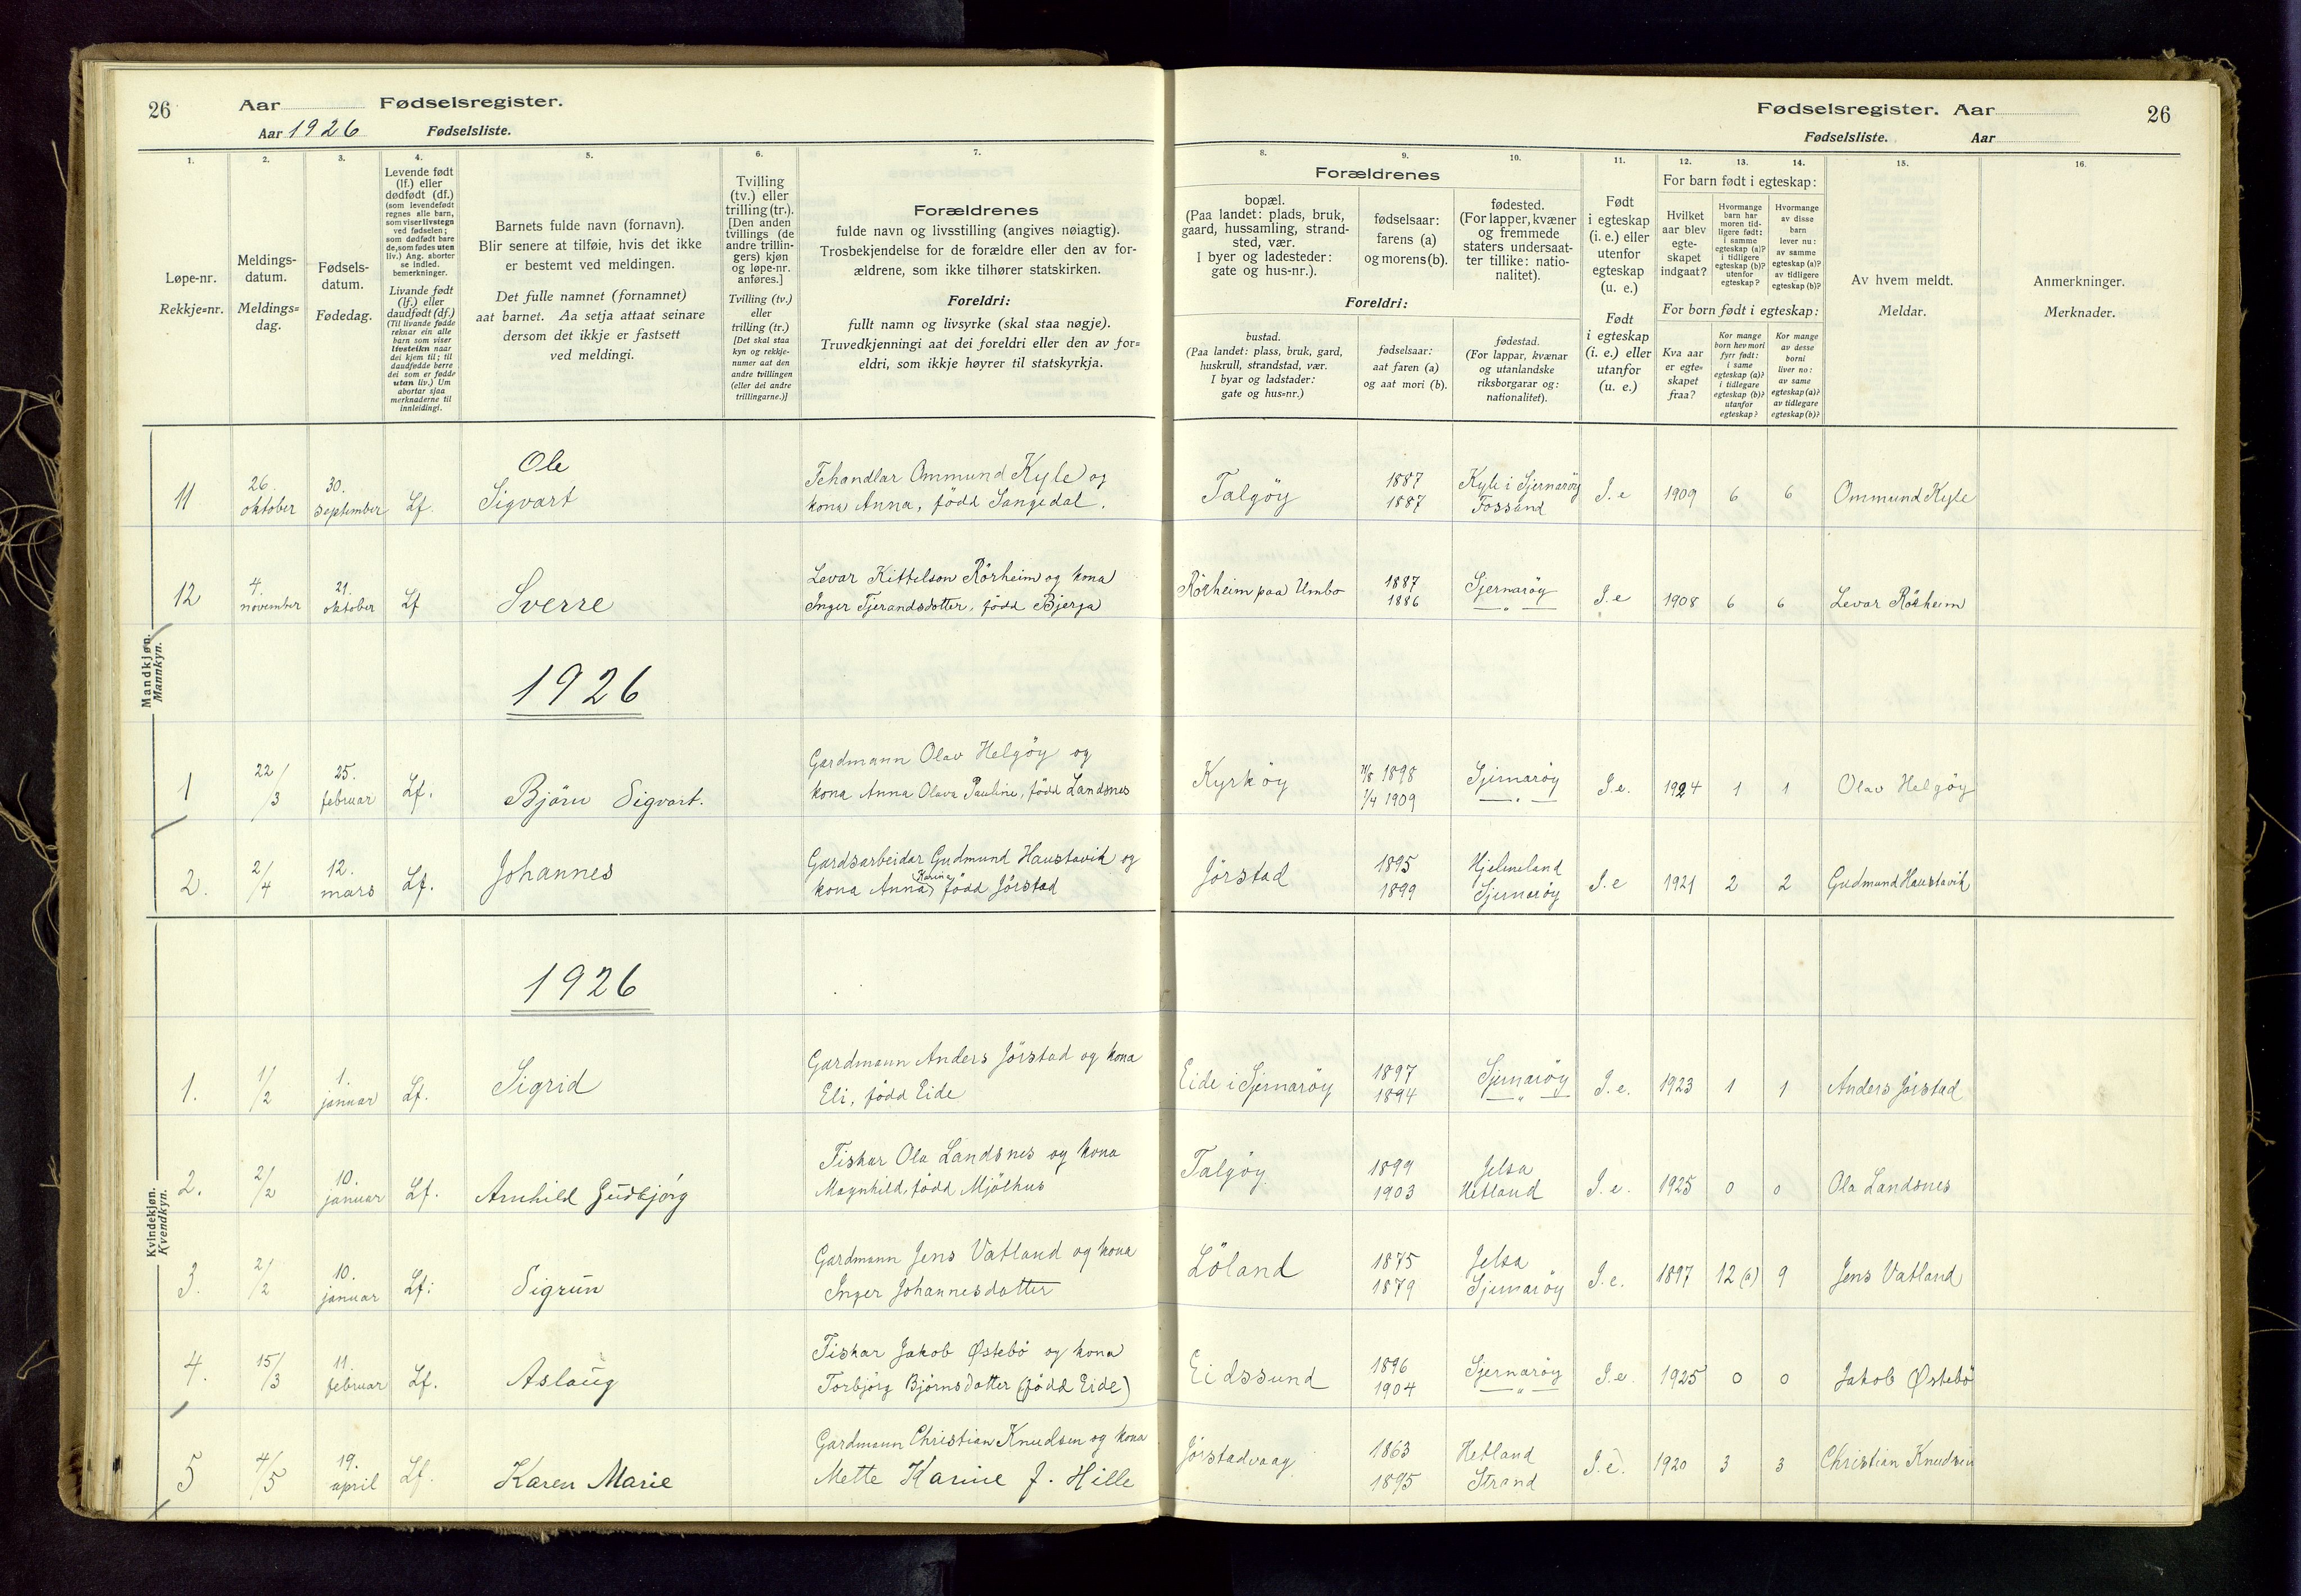 26
Aar Fødselsregister.
Aar 1926 Fødselsliste.
Fødselsregister. Aar
26
Fødselsliste. Aar
1.
2.
3.
4.
5.
6.
7.
8.
9.
10.
11.
12.
13.
14.
15.
16.
Løpe-nr.
Rekkje=nr.
Meldings-
datum.
Meldings=
dag.
Fødsels-
datum.
Fødedag.
Levende født
(lf.) eller
dødfødt (df.)
(som levendefødt
regnes alle barn,
som viser livstegn
ved fødselen;
som dødfødt bare
de, som fødes uten
liv.) Ang. aborter
se indled.
bemerkninger.
Livande født
(lf.) eller
daudfødt (df.)
(Til livande fødde
reknar ein alle
barn som viser
livsteikn naar
dei kjem til; til
daudfødde berre
dei som er fødde
utan liv.) Um
abortar sjaa
merknaderne til
innleidingi.
Barnets fulde navn (fornavn).
Blir senere at tilføie, hvis det ikke
er bestemt ved meldingen.
Det fulle namnet (fornamnet)
aat barnet. Aa setja attaat seinare
dersom det ikkje er fastsett
ved meldingi.
Tvilling
(tv.) eller
trilling (tr.).
[Den anden
tvillings (de
andre trillin-
gers) kjøn
og løpe-nr.
anføres.]
Tvilling (tv.)
eller
trilling (tr.)
[Det skal staa
kyn og rekkje-
numer aat den
andre tvillingen
(eller dei andre
trillingarne.)]
Forældrenes
fulde navn og livsstilling (angives nøiagtig).
Trosbekjendelse for de forældre eller den av for-
ældrene, som ikke tilhører statskirken.
Foreldri:
fullt namn og livsyrke (skal staa nøgje).
Truvedkjenningi aat dei foreldri eller den av for=
eldri, som ikkje høyrer til statskyrkja.
Forældrenes
bopæl.
(Paa landet: plads, bruk,
gaard, hussamling, strand-
sted, vær.
I byer og ladesteder:
gate og hus-nr.).
fødselsaar:
farens (a)
og morens (b).
fødested.
(For lapper, kvæner
og fremmede
staters undersaat-
ter tillike: natio-
nalitet).
Foreldri:
bustad.
(Paa landet: plass, bruk, gard,
huskrull, strandstad, vær.
I byar og ladstader:
gate og hus=nr.)
fødselsaar:
aat faren (a)
og aat mori (b).
fødestad.
(For lappar, kvænar
og utanlandske
riksborgarar og:
nationalitet).
Født
i egteskap
(i. e.) eller
utenfor
egteskap
(u. e.)
Født
i egteskap
(i. e.) eller
utanfor
(u. e.)
For barn født i egteskap:
Hvilket
aar blev
egte-
skapet
indgaat?
Hvormange
barn har
moren tid-
ligere født:
i samme
egteskap (a)?
i tidligere
egteskap (b)?
utenfor
egteskap?
Hvormange
av disse
barn
lever nu:
av samme
egteskap (a)?
av tidligere
egteskap (b)?
For born født i egteskap:
Kva aar
er egte=
skapet
fraa?
Kor mange
born hev mori
fyrr født:
i same
egteskap (a)?
i tidlegare
egteskap (b)?
utanfor
egteskap?
Kor mange
av desse
borni
liver no:
av same
egteskap (a)?
av tidlegare
egteskap (b)?
Av hvem meldt.
Meldar.
Anmerkninger.
Merknader.
Mandkjøn.
Mannkyn.
11 26. oktober 30. september Lf. Ole Sigvart
Fehandlar Ommund Kyle og
kona Anna, född Sangedal.
Talgöy 1887 1887 Kyle i Sjernaröy Fossand I. e 1909 6 6 Ommund Kyle
12 4. november 21. oktober Lf Sverre
Levar Kittelson Rörheim og kona
Inger Tjerandsdotter, född Bjerga
Rörheim paa Umbo 1887 1886 Sjernaröy —"— I. e 1908 6 6 Levar Rörheim
1926
1 22/3 25. februar Lf. Björn Sigvart.
Gardmann Olav Helgöy og
kona Anna Olava Pauline, född Landsnes
Kyrköy 1898 1/4 1909 Sjernaröy —"— I. e. 1924 1 1 Olav Helgöy
2. 2/4 12. mars Lf. Johannes
Gardsarbeidar Gudmund Haustavik og
kona Anna Karina, född Jörstad
Jörstad 1895 1899 Hjelmeland Sjernaröy I. e 1921 2 2 Gudmund Haustavik
Kvindekjøn.
Kvendkyn.
1926
1. 1/2 1. januar Lf. Sigrid
Gardmann Anders Jörstad og kona
Eli, född Eide
Eide i Sjernaröy 1897 1894 Sjernaröy —"— I. e. 1923 1 1 Anders Jörstad
2. 2/2 10. januar Lf. Arnhild Gudbjörg
Fiskar Ola Landsnes og kona
Magnhild, född Mjölhus
Talgöy 1899 1903 Jelsa Hetland I. e. 1925 0 0 Ola Landsnes
3. 2/2 10. januar Lf: Sigrun
Gardmann Jens Vatland og kona
Inger Johannesdotter
Löland 1875 1879 Jelsa Sjernaröy I. e. 1897 12 (a) 9 Jens Vatland
4. 15/3 11. februar Lf. Aslaug
Fiskar Jakob Østebö og kona
Torbjörg Björnsdotter (född Eide)
Eidssund 1896 1904 Sjernaröy —"— I. e. 1925 0 0 Jakob Østebö
5 4/5 19. april Lf. Karen Marie
Gardmann Christian Knudsen og kona
Mette Karine f. Hille
Jörstadvaag 1863 1895 Hetland Strand I. e. 1920 3 3 Christian Knudsen